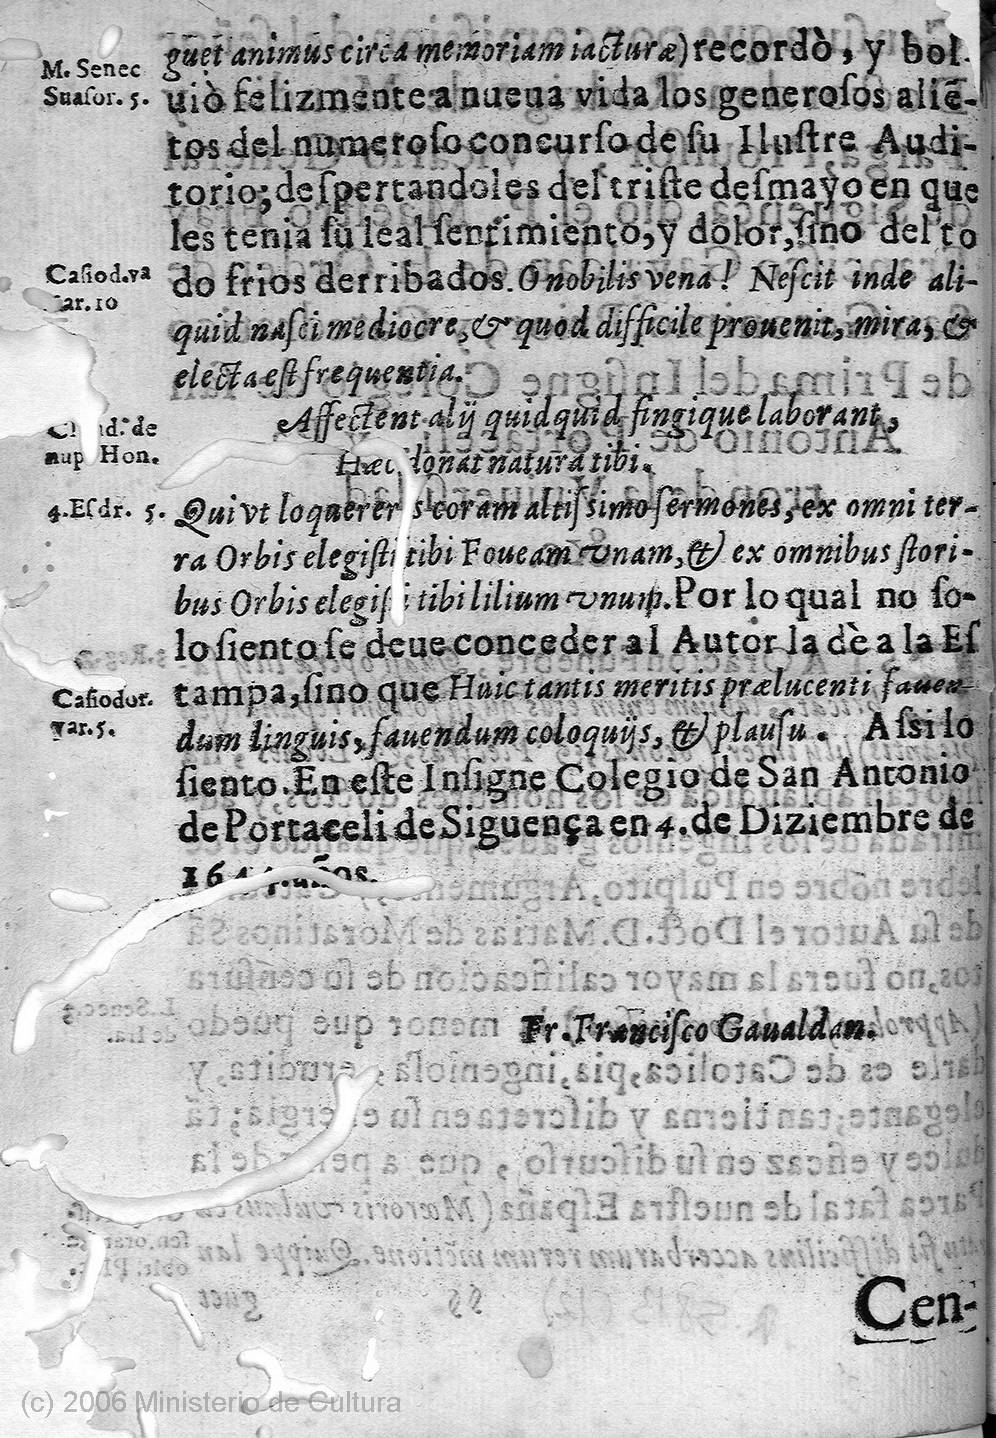 M. Senec
Suasor. 5.
guet animus circa memoriam iacturæ) recordò, y bol-
uiò felizmente a nueua vida los generosos aliẽ-
tos del numeroſo concurſo de ſu Iluſtre Audi-
torio; deſpertandoles del triſte deſmayo en que
les tenia ſu leal ſentimiento, y dolor, ſino del to
Caſiod. va
ar. 10
do frios derribados. O nobilis vena! Neſcit inde ali-
quid naſci mediocre, & quod difficile prouenit, mira, &
electa eſt frequentia.
Affectent alij quidquid fingique laborant,
nup. Hon.
Hæc donat natura tibi.
4. Eſdr. 5.
Qui vt loquereris coram altiſſimo ſermones, ex omni ter-
ra Orbis elegiſti tibi Foueam vnam, & ex omnibus ſtori-
bus Orbis elegiſti tibi lilium vnum. Por lo qual no ſo-
lo ſiento ſe deue conceder al Autor la dè a la Eſ
Caſiodor.
var. 5.
tampa, ſino que Huic tantis meritis prælucenti fauen-
dum linguis, fauendum coloquijs, & plauſu. Aſsi lo
ſiento. En eſte Inſigne Colegio de San Antonio
de Portaceli de Siguença en 4. de Diziembre de
1644. años.
Fr. Franciſco Gaualdan.
Cen-
(c) 2006 Ministerio de Cultura